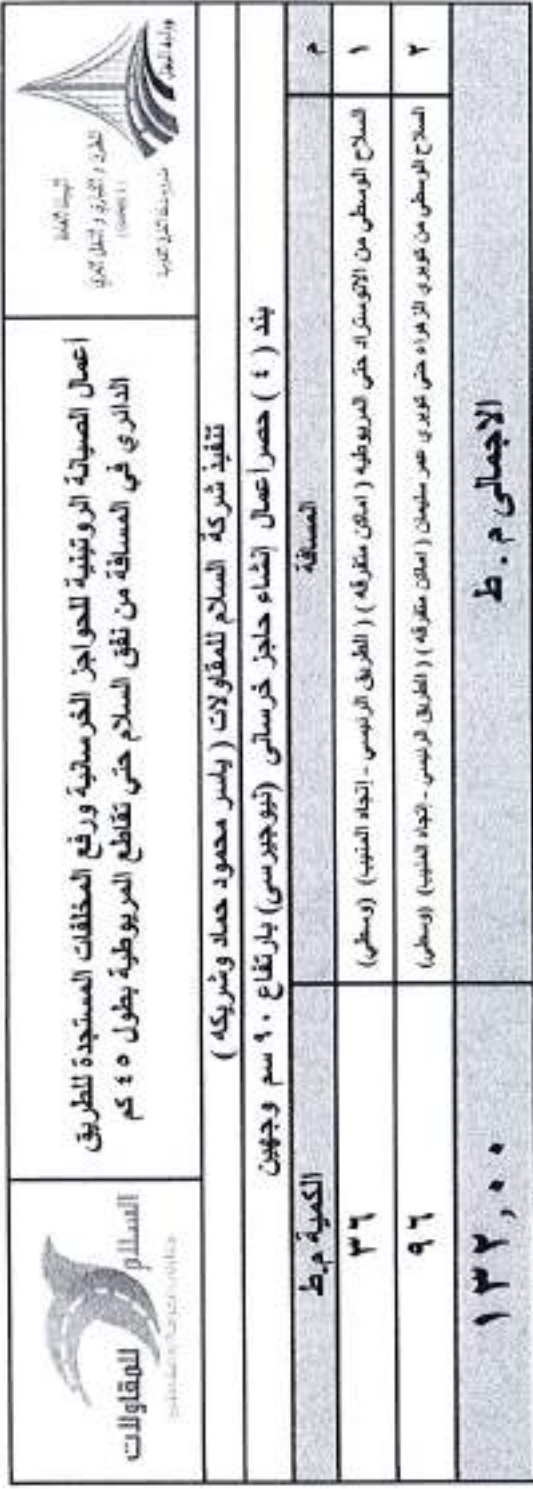 وزارة النقل
الهيئة العامة
للطرق و الكباري و النقل البري
(GARBLT)
أعمال الصيانة الروتينية للحواجز الخرسانية ورفع المخلفات المستجدة للطريق
الدائري في المسافة من نفق السلام حتى تقاطع المريوطية بطول ٤٥ كم
السلام
للمقاولات
تنفيذ شركة السلام للمقاولات ( ياسر محمود حماد وشريكه )
بند ( ٤ ) حصر أعمال إنشاء حاجز خرساني (نيوجيرسى) بارتفاع ٩٠ سم وجهين
م المسافة الكمية م.ط
١ السلاح الوسطي من الاتوستراد حتى المريوطيه ( اماكن متفرقه ) ( الطريق الرئيسي - إتجاه المنيب) (وسطي) ٣٦
٢ السلاح الوسطي من كوبري الزهراء حتى كوبري عمر سليمان ( اماكن متفرقه ) ( الطريق الرئيسي - إتجاه المنيب) (وسطي) ٩٦
الاجمالى م . ط ١٣٢,٠٠